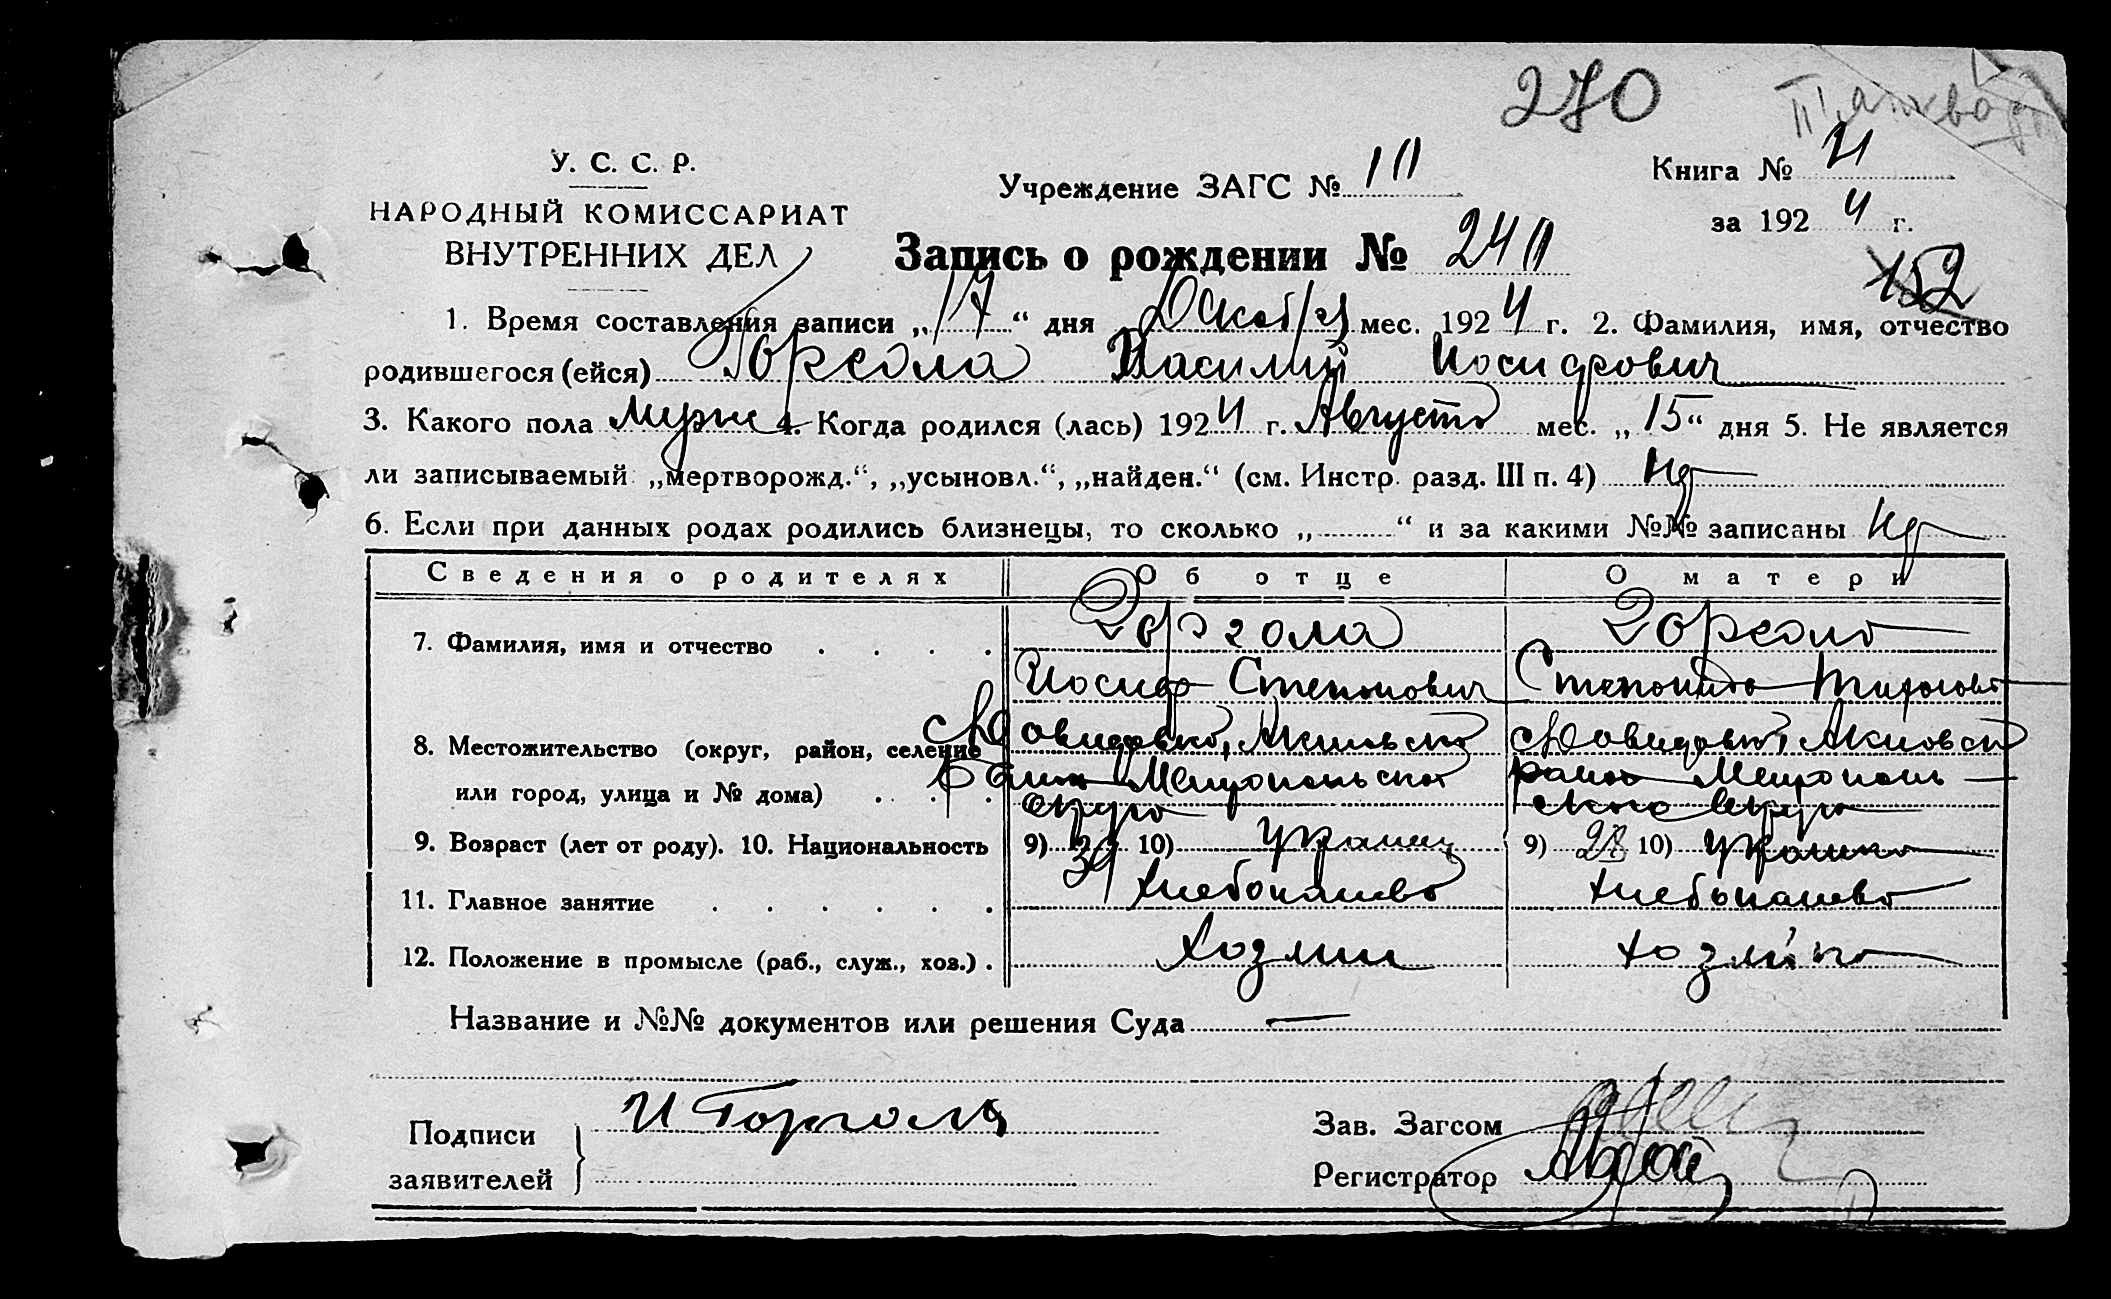 270
У. С. С. Р.
НАРОДНЫЙ КОМИССАРИАТ
ВНУТРЕННИХ ДЕЛ
Учреждение ЗАГС №
Книга №
за 192 4 г.
Запись о рождении №
152
1. Время составления записи „17“ дня мес. 192 4 г. 2. Фамилия, имя, отчество
родившегося (ейся) Горгола Василий Иосифович
3. Какого пола мужс 4. Когда родился (лась) 192 4 г. Августа мес. „15“ дня 5. Не является
ли записываемый „мертворожд.“, „усыновл.“, „найден.“ (см. Инстр. разд. III п. 4)
6. Если при данных родах родились близнецы, то сколько „ “ и за какими №№ записаны
Сведения о родителях Об отце О матери
7. Фамилия, имя и отчество Горгола Горгола
Иосиф Степанович Степанида
8. Местожительство (округ, район, селение Давидовка, Акимовск Давидовка, Акимовск
или город, улица и № дома) Мелитопольск район Мелитополь
округа ского округа
9. Возраст (лет от роду). 10. Национальность 9) 10) украинец 9) 28 10) украинка
11. Главное занятие хлебопашество хлебопашество
12. Положение в промысле (раб., служ., хоз.) . Хозяин хозяйка
Название и №№ документов или решения Суда —
Подписи И Горгола
заявителей
Зав. Загсом
Регистратор